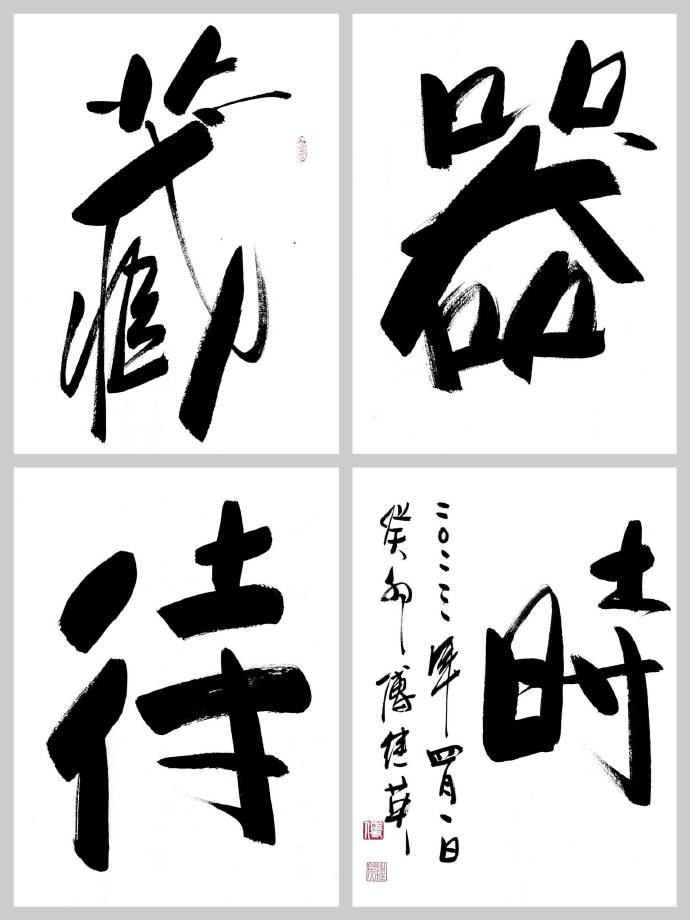 藏
器
待
時
二〇二三年四月一日
癸卯傅健華